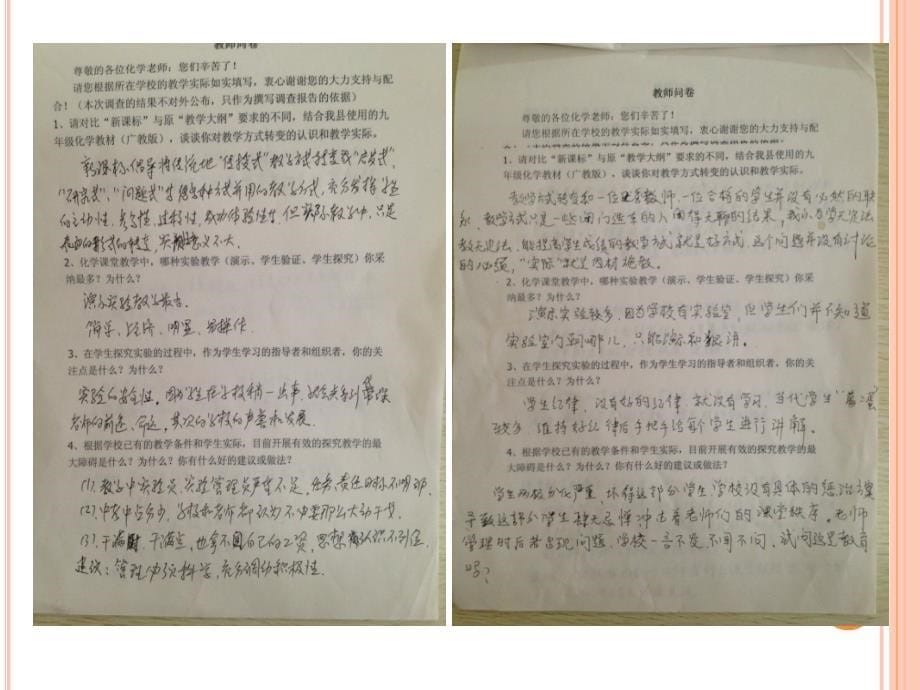 教师问卷
尊敬的各位化学老师：您们辛苦了！
请您根据所在学校的教学实际如实填写，衷心谢谢您的大力支持与配
合！（本次调查的结果不对外公布，只作为撰写调查报告的依据）
1、请对比“新课标”与原“教学大纲”要求的不同，结合我县使用的九
年级化学教材（广教版），谈谈你对教学方式转变的认识和教学实际。
新课标倡导将传统地“传授式”教学方式转变成“启发式”、
“研究式”、“问题式”等多种方式并用的教学方式，充分发挥学生
的主动性、过程性、成功体验性 但实际教学中，只是
表面的形式的转变，实际意义不大。
2、化学课堂教学中，哪种实验教学（演示、学生验证、学生探究）你采
纳最多？为什么？
演示实验教学最多。
简单、经济、明显、易操作。
3、在学生探究实验的过程中，作为学生学习的指导者和组织者，你的关
注点是什么？为什么？
实验的安全性，因学生在学校稍一出事，就会关系到
老师的前途、命运，其次的学校的声誉和发展。
4、根据学校已有的教学条件和学生实际，目前开展有效的探究教学的最
大障碍是什么？为什么？你有什么好的建议或做法？
(1). 教学中实验员、实验管理员严重不足，任务、责任目标不明确
(2). 中考中占分少，学校和老师都认为不必要那么大动干戈。
(3). 干满、干满意，也拿不回自己的工资，思想认识不到位。
建议：管理必须科学，充分调动积极性。
教师问卷
尊敬的各位化学老师：您们辛苦了！
请您根据所在学校的教学实际如实填写，衷心谢谢您的大力支持与配
1、请对比“新课标”与原“教学大纲”要求的不同，结合我县使用的九
年级化学教材（广教版），谈谈你对教学方式转变的认识和教学实际。
教学方式转变和一位老教师、一位合格的学生并没有必然的联
系，教学方式只是一些闭门造车的人闲得无聊的结果，我认为学无定法
教无定法，能提高学生成绩的教学方式就是好方式 这个问题并没有讨论
的必须，“实际”就是因材施教。
2、化学课堂教学中，哪种实验教学（演示、学生验证、学生探究）你采
纳最多？为什么？
演示实验较多，因为学校有实验室，但学生们并不知道
实验室门朝哪儿，只能演示和
3、在学生探究实验的过程中，作为学生学习的指导者和组织者，你的关
注点是什么？为什么？
学生纪律，没有好的纪律，就没有学习，当代学生
较多，维持好纪律后手把手给每个学生进行讲解。
4、根据学校已有的教学条件和学生实际，目前开展有效的探究教学的最
大障碍是什么？为什么？你有什么好的建议或做法？
学生两极分化严重，坏得这部分学生，学校没有具体的惩治方案
导致这部分学生肆无忌惮冲击着老师们的课堂秩序。老师
管理时后若出现问题，学校一言不发，不闻不问，试问这是教育
吗？